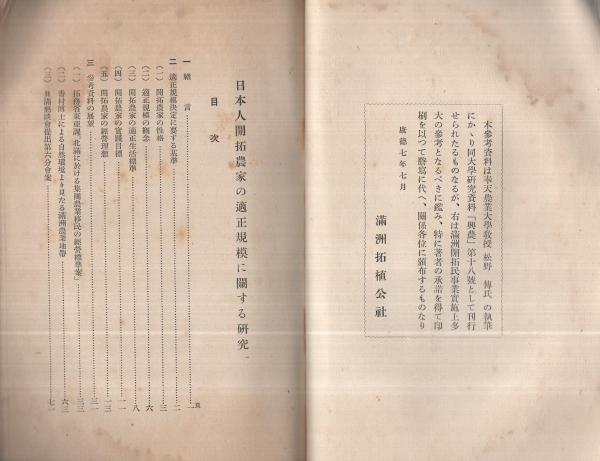 本參考資料は奉天農業大學敎授 松野 傳氏 の執筆
にかゝり同大學硏究資料「興農」第十八號として刊行
せられたるものなるが、右は滿洲開拓民事業實施上多
大の參考となるべきに鑑み、特に著者の承諾を得て印
刷を以つて謄寫に代へ、關係各位に頒布するものなり
康德七年七月
滿洲拓植公社
日本人開拓農家の適正規模に關する硏究
目次
頁
一 緖言……一
二 適正規模決定に要する基準……二
(一) 開拓農家の性格……三
(二) 適正規模の觀念……六
(三) 開拓農家の適正生活標準……八
(四) 開拓農家の實踐目標……一一
(五) 開拓農家の經營理想……一三
三 參考資料の展望……三一
(一) 拓務省東亞課、北滿に於ける集團農業移民の經營標準案」……三三
(二) 香村博士による自然環境より見たる滿洲農業地帶……六三
(三) 日滿懇談會提出第六分會案……七一